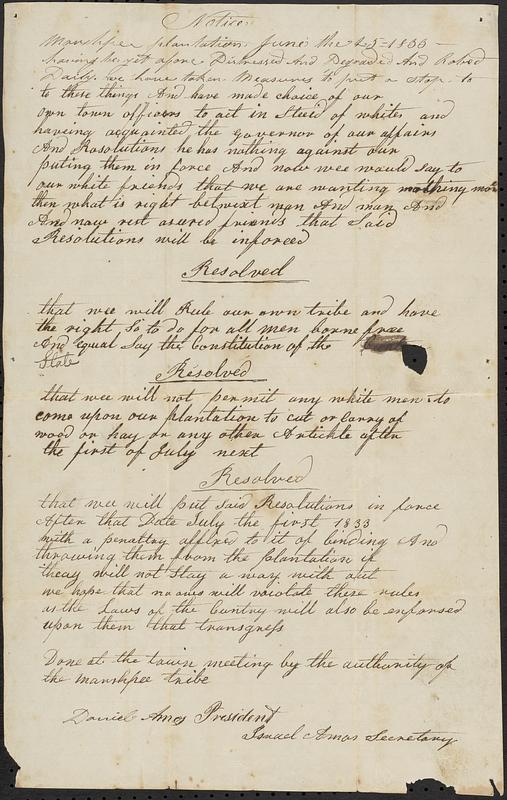 Notice
Marshpee plantation June the 25-1833
having he yet afore Distressed And Degraded And Robed
Daily. we have taken Measures to put a Stop to
to these things And have made choice of our
own town officers to act in Stuid of whites and
haveing acquainted the governor of our affairs
And Resolutions he has nothing against our
puting them in force And now wee would Say to
our white friends that we are wanting nothing more
then what is right betwixt man And man And
And now rest asured friends that Said
Resolutions will be inforced
Resolved
that wee will Rule our own tribe and have
the right So to do for all men borne free
And equal Say the Constitution of the
State
Resolved
that wee will not permit any white men to
come upon our plantation to cut or Carry of
wood or hay or any other Artickle after
the first of July next
Resolved
that wee will put Said Resolutions in force
After that Date July the first 1833
with a penattry affixed to it of binding And
throwing them from the plantation if
theay will not Stay a way with out
we hope that no ones will voiolate these rules
as the Laws of the Cuntry will also be enforsed
upon them that transgress
Done at the town meeting by the authority of
the marshpee tribe
Daniel Amos President
Isreal Amos Secretary